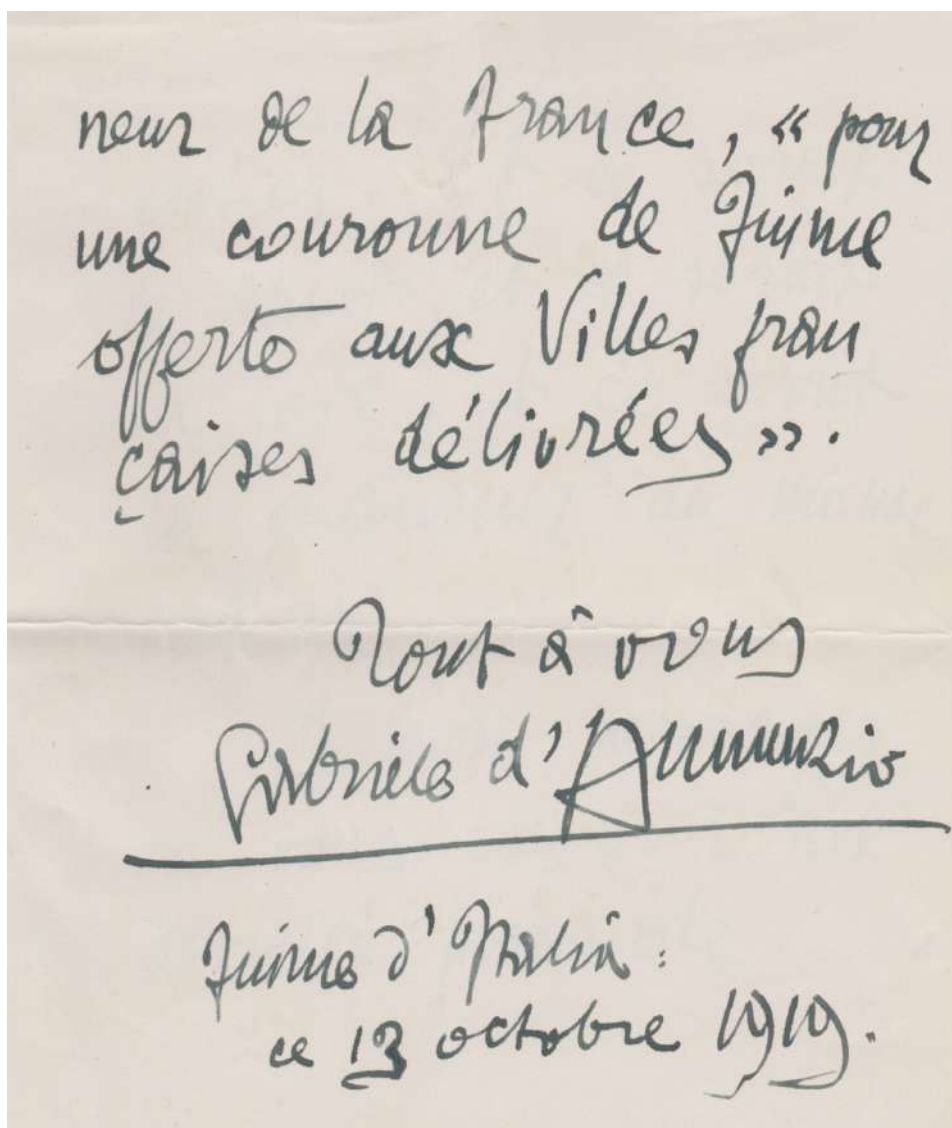 neur de la France, « pour
une couronne de Fiume
offerte aux Villes fran
çaises délivrées ».
Tout à vous
Gabriele d'Annunzio
Fiume d'Italia:
ce 13 octobre 1919.